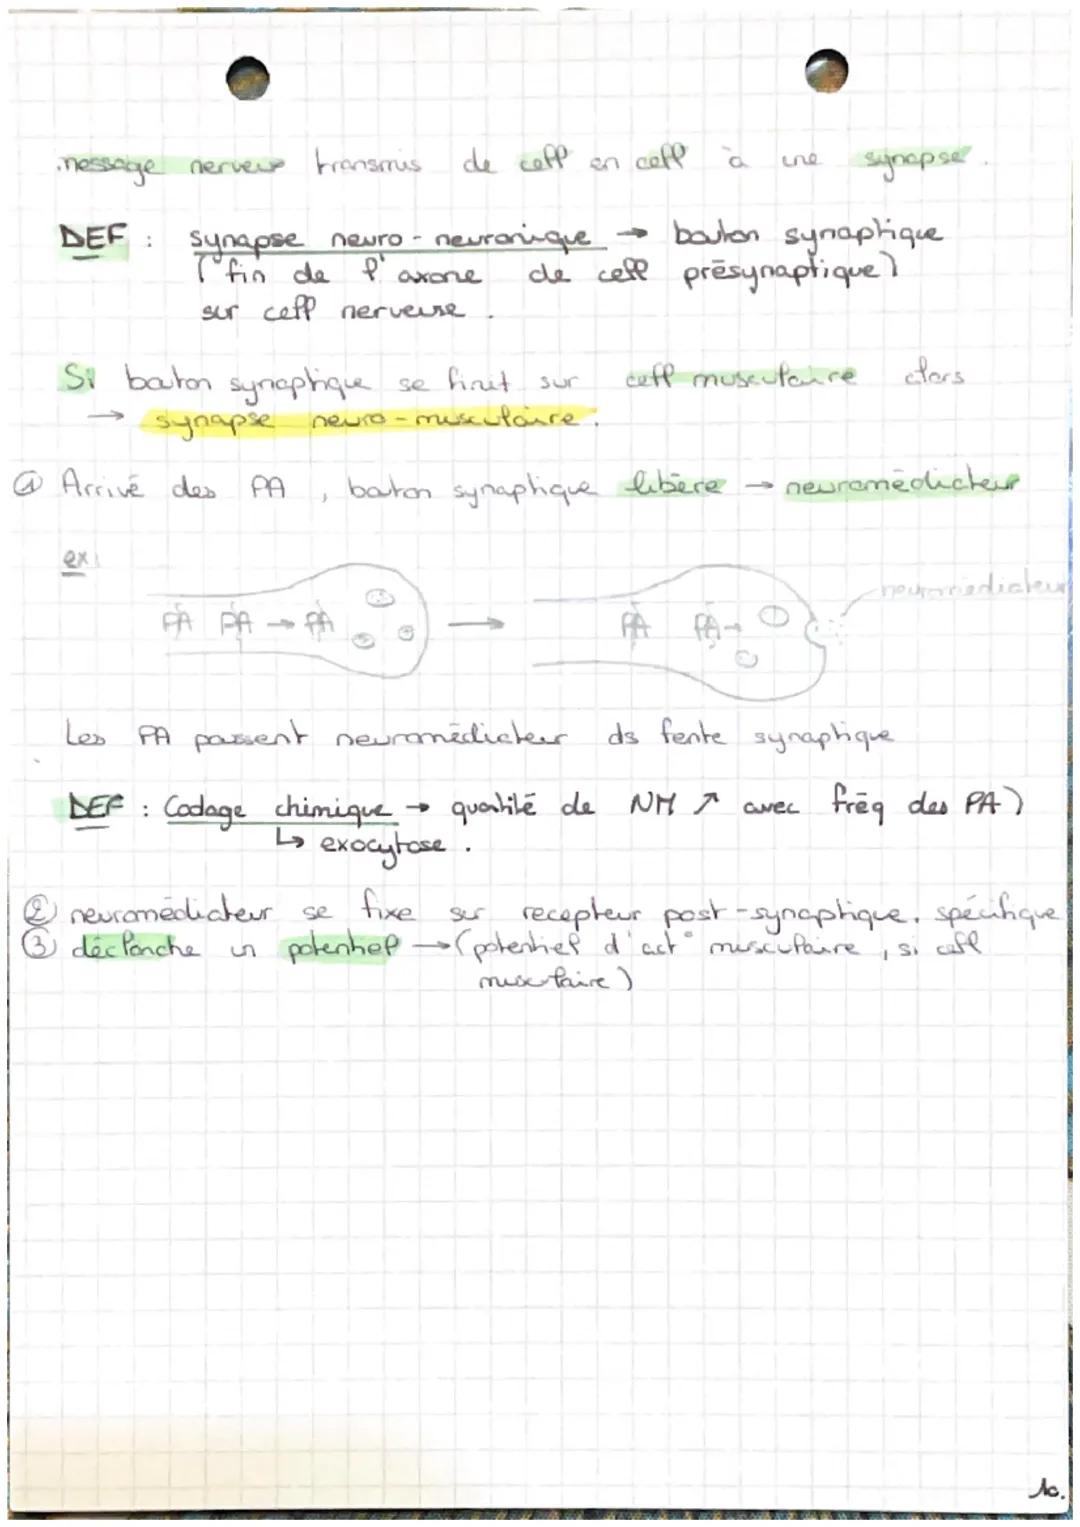 message nerveux transmis de cell en cell à une synapse.
DEF : synapse neuro-neuronique → bouton synaptique
(fin de l'axone de cell présynaptique)
sur cell nerveuse.
Si bouton synaptique se finit sur cell musculaire alors
→ synapse neuro-musculaire.
① Arrivé des PA, bouton synaptique libère → neuromédicteur
ex:
neuromediateur
PA PA → PA → PA PA→
Les PA poussent neuromédicteur ds fente synaptique
DEF : Codage chimique → quantité de NM ↗ avec fréq des PA)
↳ exocytose.
② neuromédiateur se fixe sur recepteur post-synaptique, spécifique
③ déclanche un potentiel → (potentiel d'act° musculaire, si cell
musculaire)